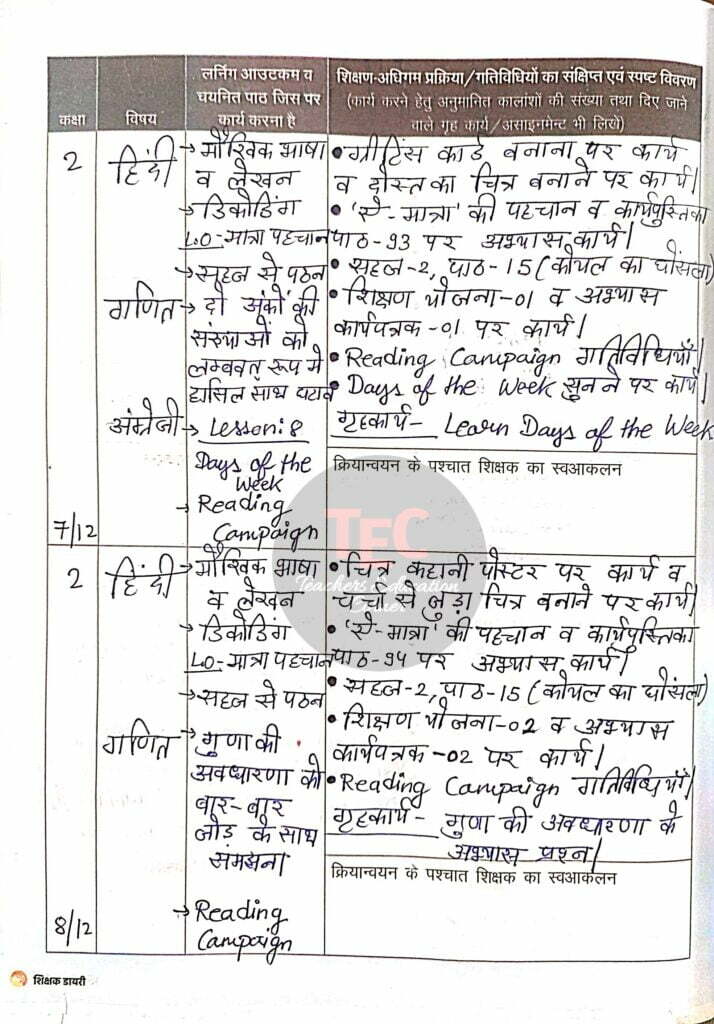 कक्षा
विषय
लर्निंग आउटकम व
चयनित पाठ जिस पर
कार्य करना है
शिक्षण-अधिगम प्रक्रिया/गतिविधियों का संक्षिप्त एवं स्पष्ट विवरण
(कार्य करने हेतु अनुमानित कालांशों की संख्या तथा दिए जाने
वाले गृह कार्य/असाइनमेन्ट भी लिखें)
2
हिंदी
→ मौखिक भाषा
व लेखन
→ डिकोडिंग
L.O-मात्रा पहचान
→ सहज से पठन
गणित
→ दो अंकों की
संख्याओं को
लम्बवत रूप में
हासिल साथ घटाव
अंग्रेजी
→ Lesson:8
Days of the
Week
→ Reading
Campaign
7/12
• ग्रीटिंस कार्ड बनाना पर कार्य
व दोस्त का चित्र बनाने पर कार्य।
• 'से-मात्रा' की पहचान व कार्यपुस्तिका
पाठ-93 पर अभ्यास कार्य।
• सहज-2, पाठ-15 (कोयल का घोंसला)
• शिक्षण योजना-01 व अभ्यास
कार्यपत्रक-01 पर कार्य।
• Reading Campaign गतिविधियाँ।
• Days of the Week सुनने पर कार्य।
गृहकार्य- Learn Days of the Week
क्रियान्वयन के पश्चात शिक्षक का स्वआकलन
TEC
Teachers Education
Corner
2
हिंदी
→ मौखिक भाषा
व लेखन
→ डिकोडिंग
L.O-मात्रा पहचान
→ सहज से पठन
गणित
→ गुणा की
अवधारणा को
बार-बार
जोड़ के साथ
समझना
→ Reading
Campaign
8/12
• चित्र कहानी पोस्टर पर कार्य व
चर्चा से जुड़ा चित्र बनाने पर कार्य।
• 'से-मात्रा' की पहचान व कार्यपुस्तिका
पाठ-94 पर अभ्यास कार्य।
• सहज-2, पाठ-15 (कोयल का घोंसला)
• शिक्षण योजना-02 व अभ्यास
कार्यपत्रक-02 पर कार्य।
• Reading Campaign गतिविधियाँ।
गृहकार्य- गुणा की अवधारणा के
अभ्यास प्रश्न।
क्रियान्वयन के पश्चात शिक्षक का स्वआकलन
शिक्षक डायरी